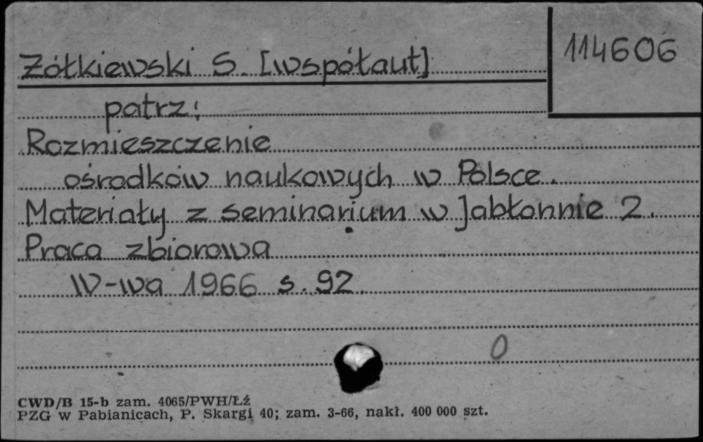 114606
Żółkiewski S. [współaut]
patrz:
Rozmieszczenie
ośrodków naukowych w Polsce.
Materiały z seminarium w Jabłonnie 2.
Praca zbiorowa
W-wa 1966 s. 92
0
CWD/B 15-b zam. 4065/PWH/Łź
PZG w Pabianicach, P. Skargi 40; zam. 3-66, nakł. 400 000 szt.